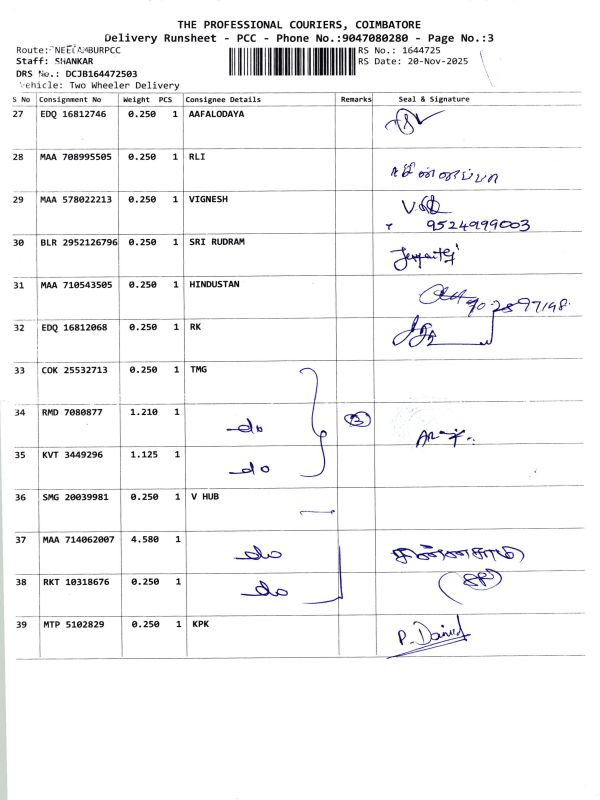 THE PROFESSIONAL COURIERS, COIMBATORE
Delivery Runsheet - PCC - Phone No.:9047080280 - Page No.:3
Route: NEELAMBURPCC RS No.: 1644725
Staff: SHANKAR RS Date: 20-Nov-2025
DRS No.: DCJB164472503
Vehicle: Two Wheeler Delivery
S No Consignment No Weight PCS Consignee Details Remarks Seal & Signature
27 EDQ 16812746 0.250 1 AAFALODAYA
28 MAA 708995505 0.250 1 RLI
29 MAA 578022213 0.250 1 VIGNESH
9524999003
30 BLR 2952126796 0.250 1 SRI RUDRAM
31 MAA 710543505 0.250 1 HINDUSTAN
32 EDQ 16812068 0.250 1 RK
33 COK 25532713 0.250 1 TMG
34 RMD 7080877 1.210 1 do 3
35 KVT 3449296 1.125 1 do
36 SMG 20039981 0.250 1 V HUB
37 MAA 714062007 4.580 1 do
38 RKT 10318676 0.250 1 do
39 MTP 5102829 0.250 1 KPK P. Daniel